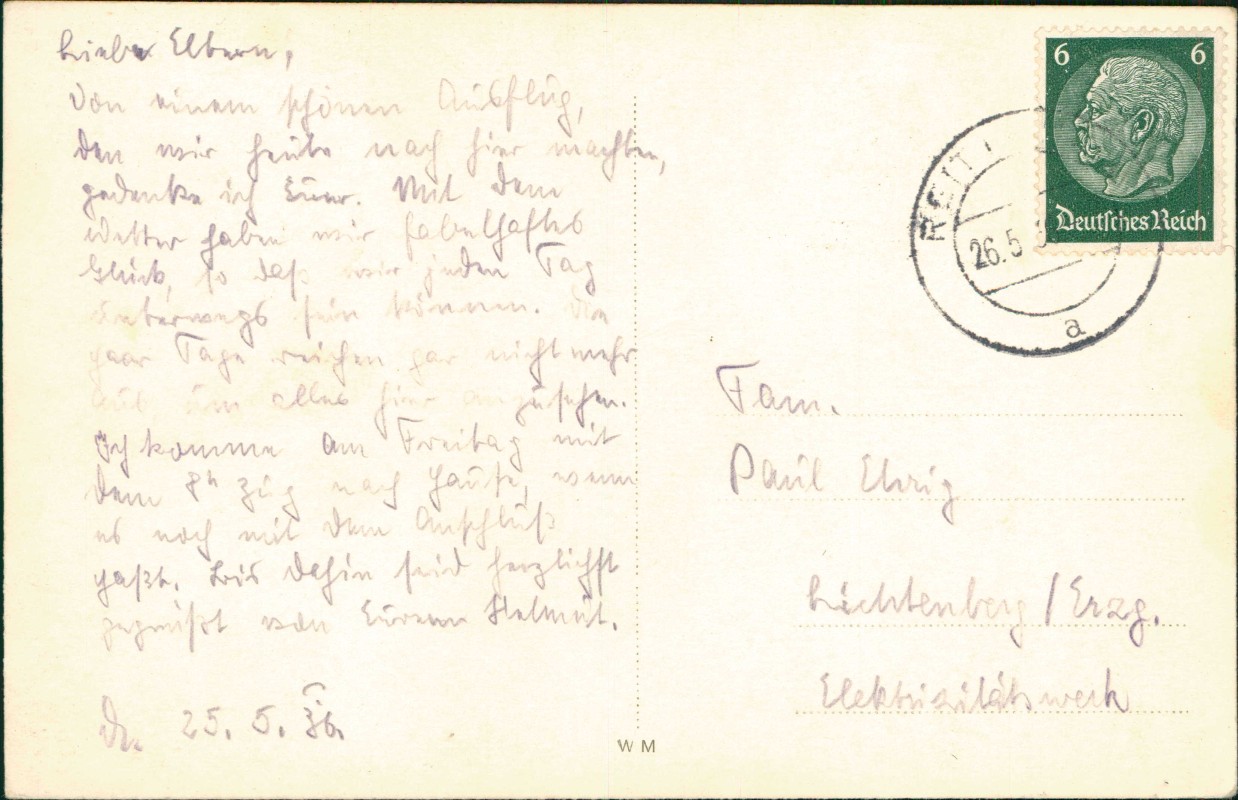 Liebe Eltern,
Von einem schönen Ausflug,
den wir heute nach hier machten,
gedenke ich Euer. Mit dem
Wetter haben wir fabelhaftes
Glück, so daß wir jeden Tag
unterwegs sein können. Die
paar Tage reichen gar nicht mehr
aus, um alles hier anzusehen.
Ich komme am Freitag mit
dem 8h Zug nach Hause, wenn
es noch mit dem Anschluß
paßt. Bis dahin seid herzlichst
gegrüßt von Eurem Helmut.
25. 5. 36.
W M
6 6
Deutsches Reich
26.5
a
Fam.
Paul
Lichtenberg / Erzg.
Elektrizitätswerk